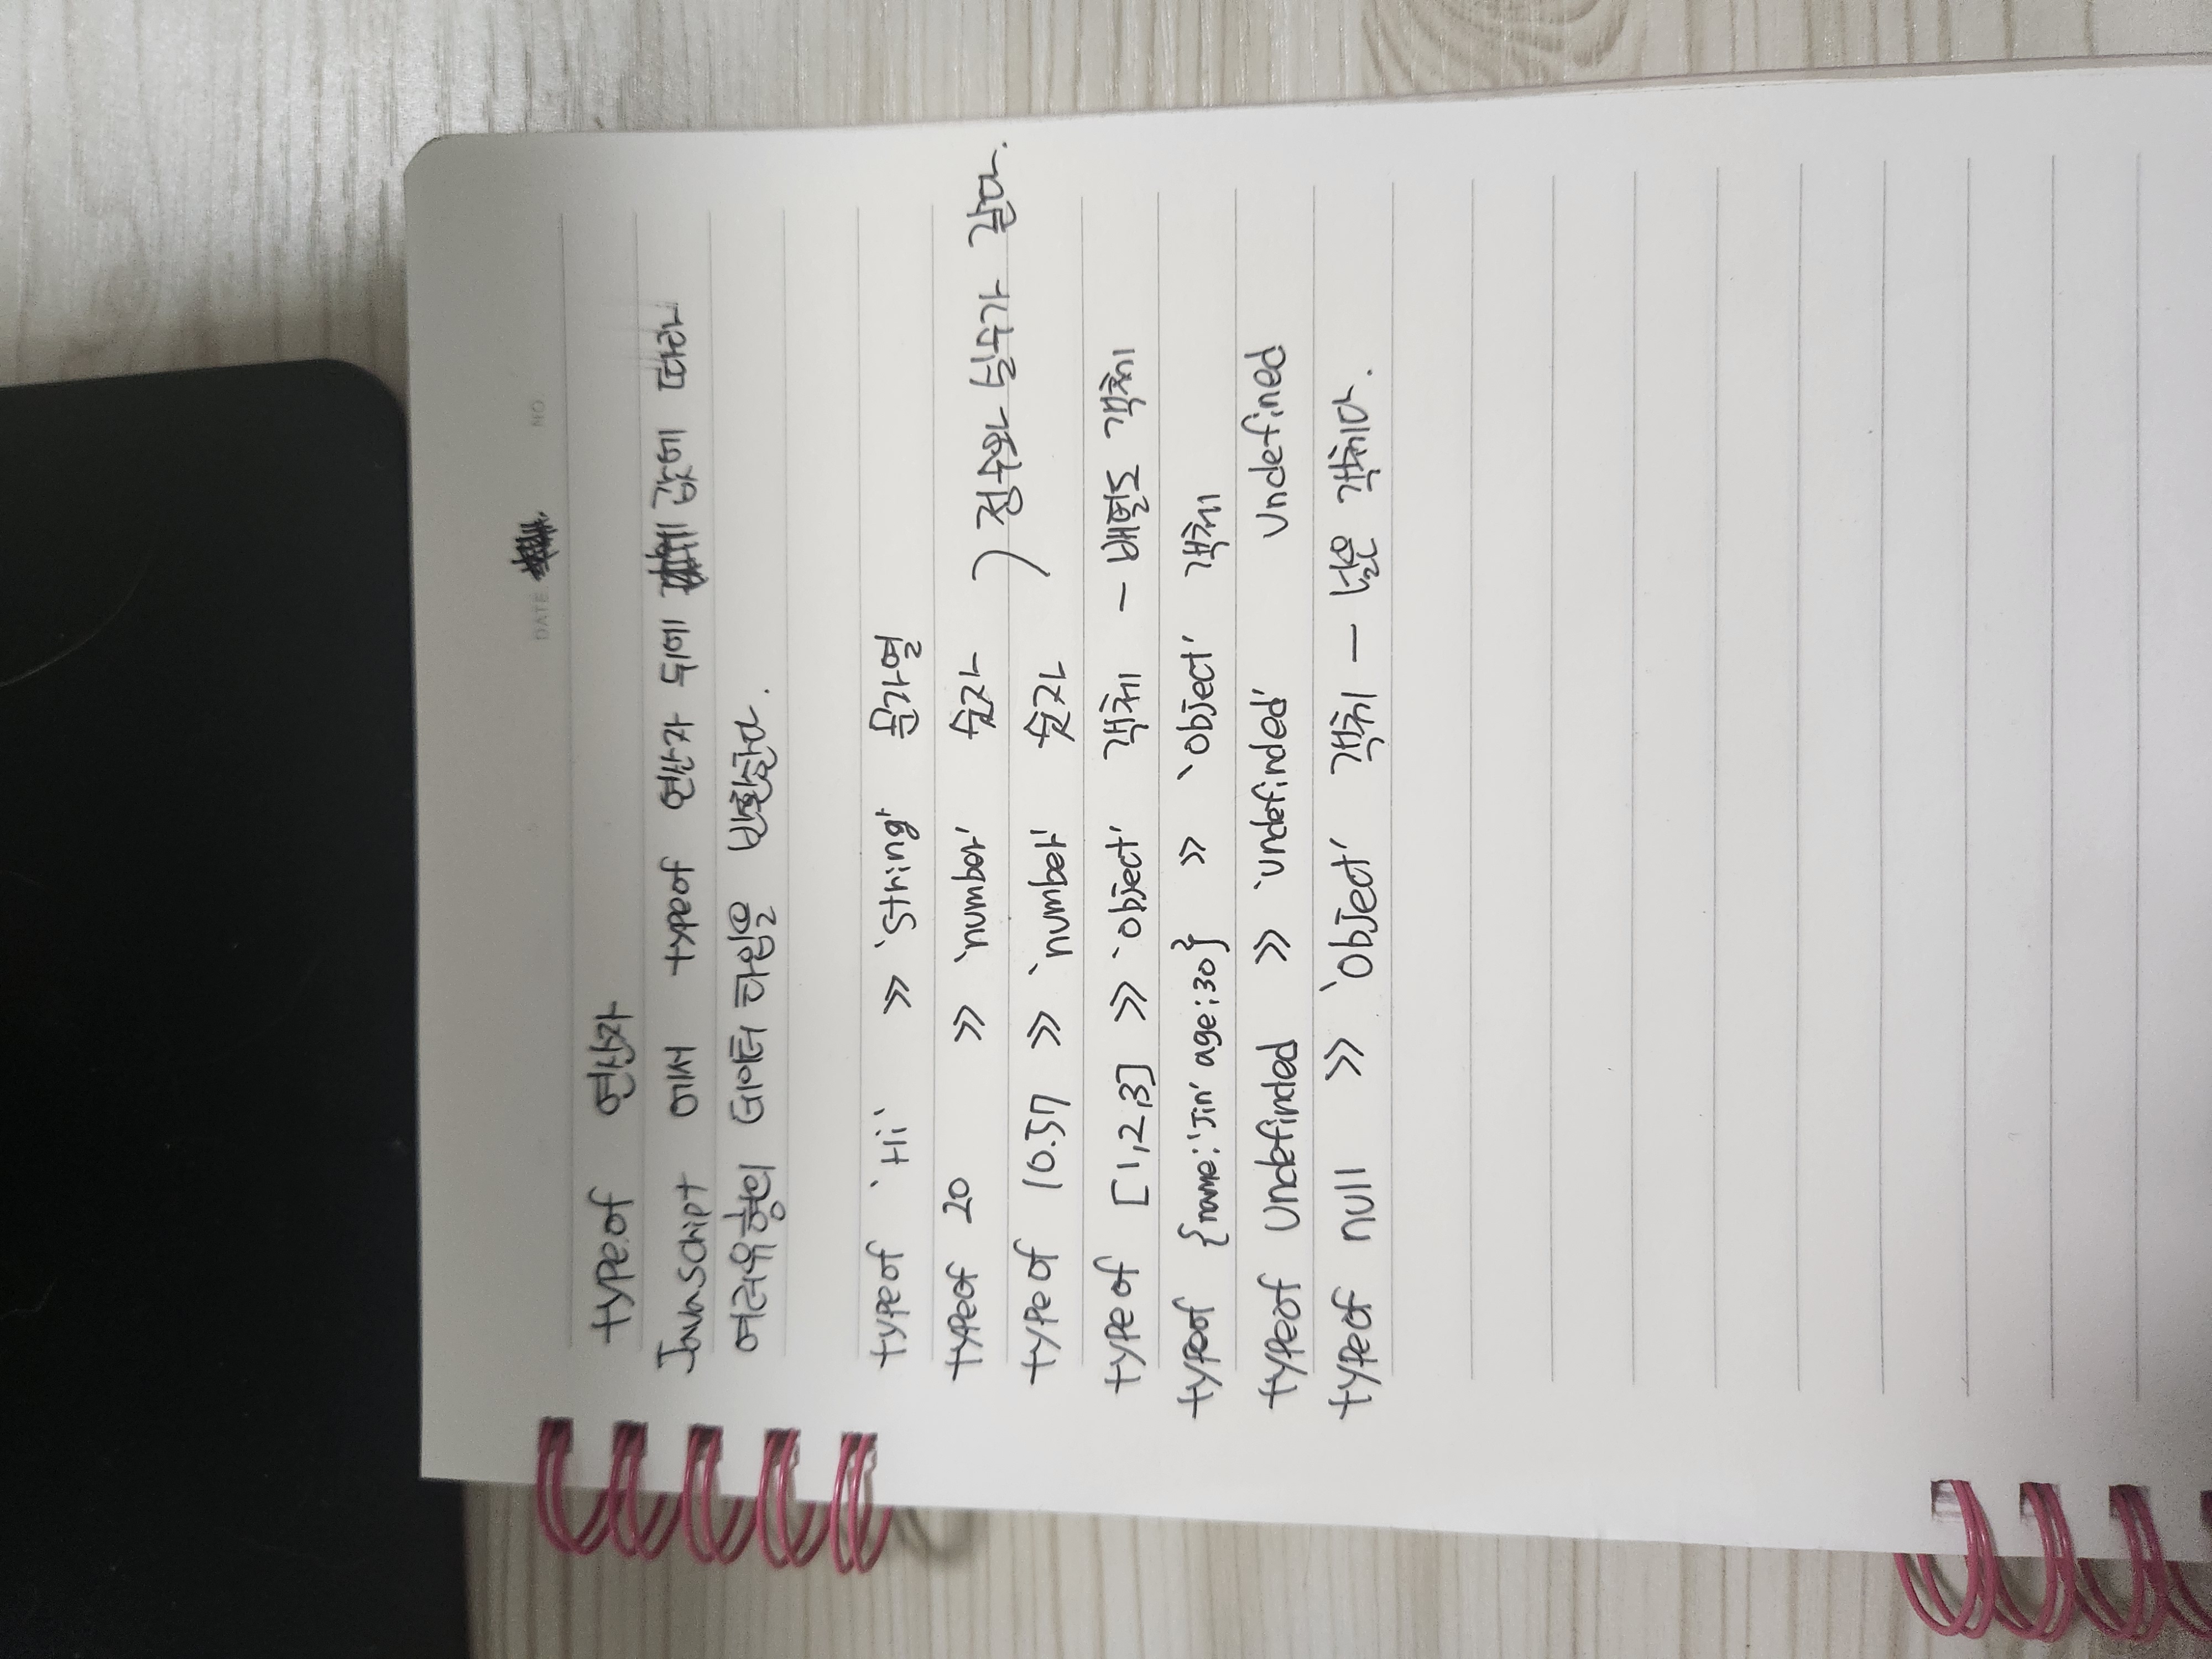 DATE NO
typeof 연산자
JavaScript 에서 typeof 연산자 뒤에 값에 따라
여러유형의 데이터 타입을 반환한다.
typeof 'Hi' >> 'String' 문자열
typeof 20 >> 'number' 숫자
typeof 10.57 >> 'number' 숫자 ) 정수와 실수가 같다.
typeof [1,2,3] >> 'object' 객체 - 배열도 객체
typeof {name:'Jin' age:30} >> 'object' 객체
typeof Undefinded >> 'undefinded' Undefined
typeof null >> 'object' 객체 - 널은 객체다.